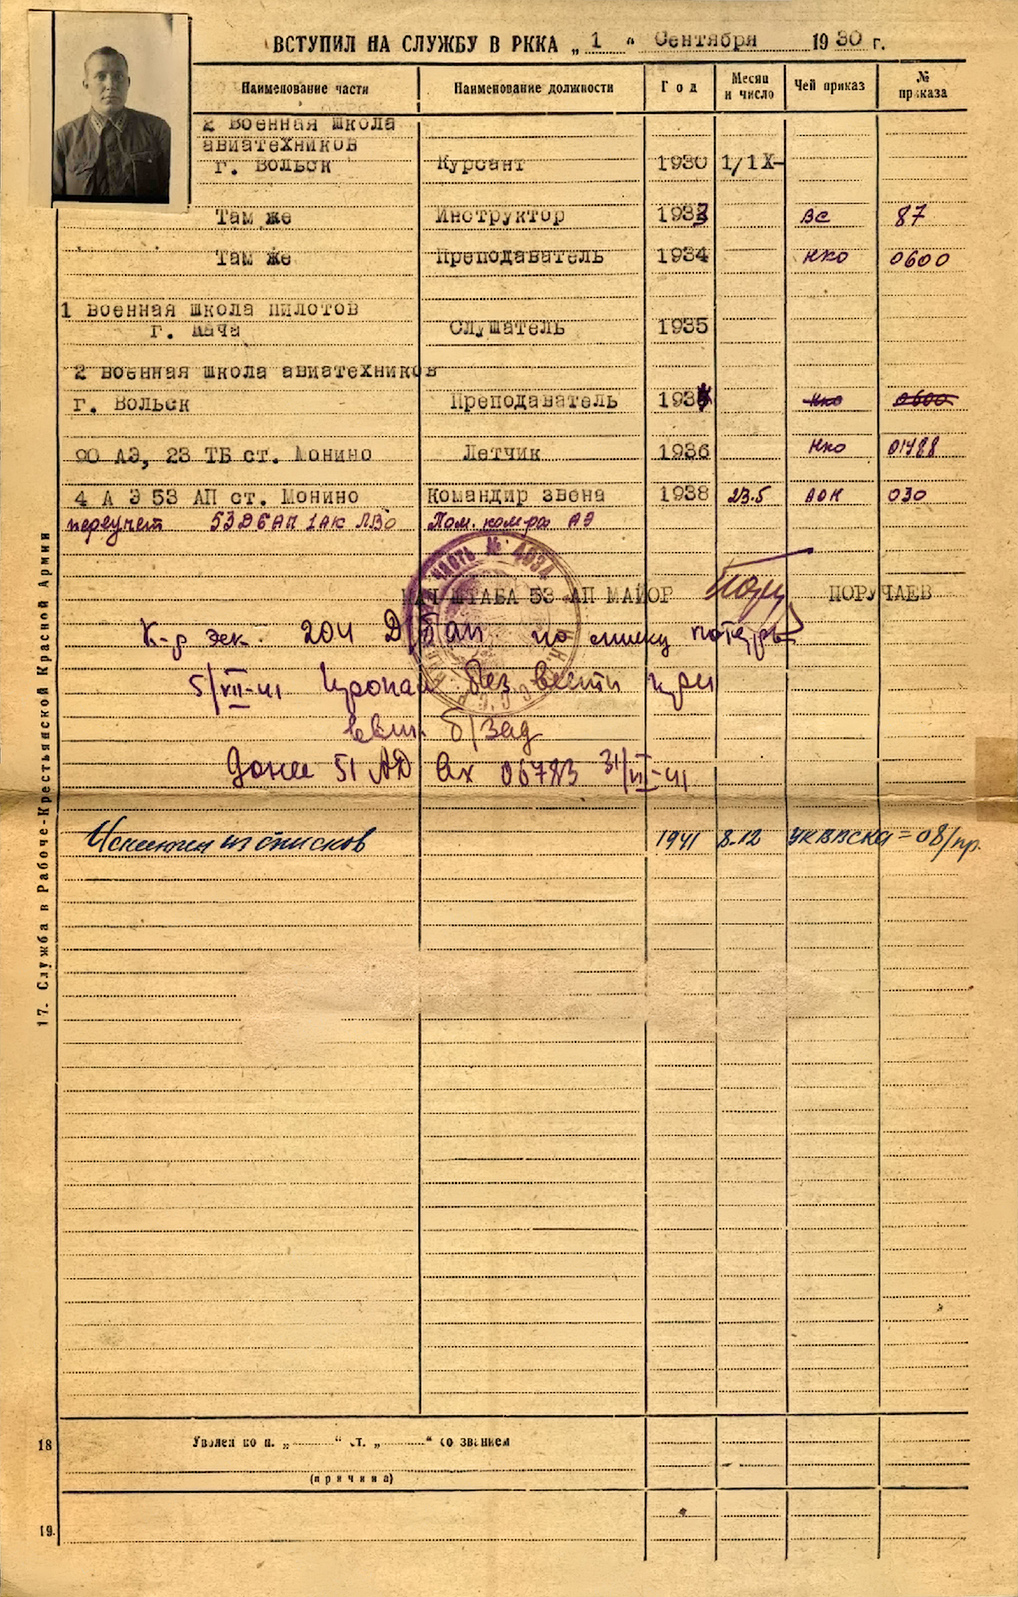 ВСТУПИЛ НА СЛУЖБУ В РККА „ 1 " Сентября 1930 г.
Наименование части Наименование должности Год Месяц и число Чей приказ № приказа
2 Военная Школа
авиатехников
г. Вольск Курсант 1930 1/IX-
Там же Инструктор 1933 ВС 87
Там же Преподаватель 1934 НКО 0600
1 Военная Школа Пилотов
г. Кача Слушатель 1935
2 Военная Школа авиатехников
г. Вольск Преподаватель 193 НКО 0600
90 АЭ, 23 ТБ ст. Монино Летчик 1936 НКО 01488
4 А Э 53 АП ст. Монино Командир звена 1938 23.5 АОН 030
переучет 53 ДБАП 1АК ЛВО Пом. ком-ра АЭ
ЧАСТЬ № 4034
НАЧ ШТАБА 53 АП МАЙОР ПОРУЧАЕВ
К-р эк. 204 Д/бап по списку потерь
5/VII-41 пропал без вести при
вып. б/зад
донес 51 АД вх 06783 31/VII-41
Исключен из списков 1941 8.12 УК ВВСКА = 08/пр.
17. Служба в Рабоче-Крестьянской Красной Армии
18 Уволен по п. „ “ ст. „ “ со званием
(причина)
19.